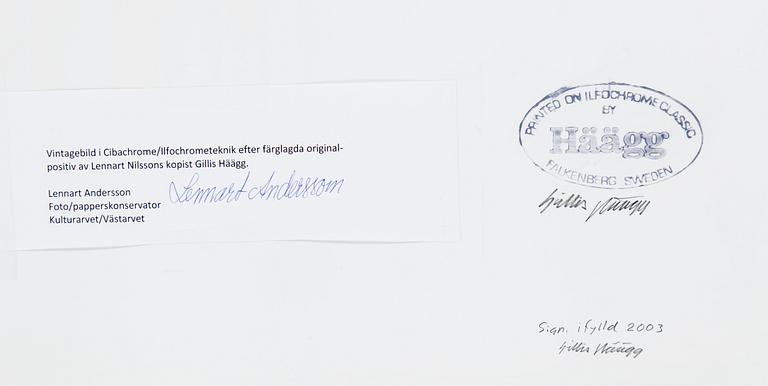 Vintagebild i Cibachrome/Ilfochrometeknik efter färglagda original-
positiv av Lennart Nilssons kopist Gillis Häägg.
Lennart Andersson
Foto/papperskonservator
Kulturarvet/Västarvet
Lennart Andersson
PRINTED ON ILFOCHROME CLASSIC
BY
Häägg
FALKENBERG SWEDEN
Gillis Häägg
Sign. ifylld 2003
Gillis Häägg